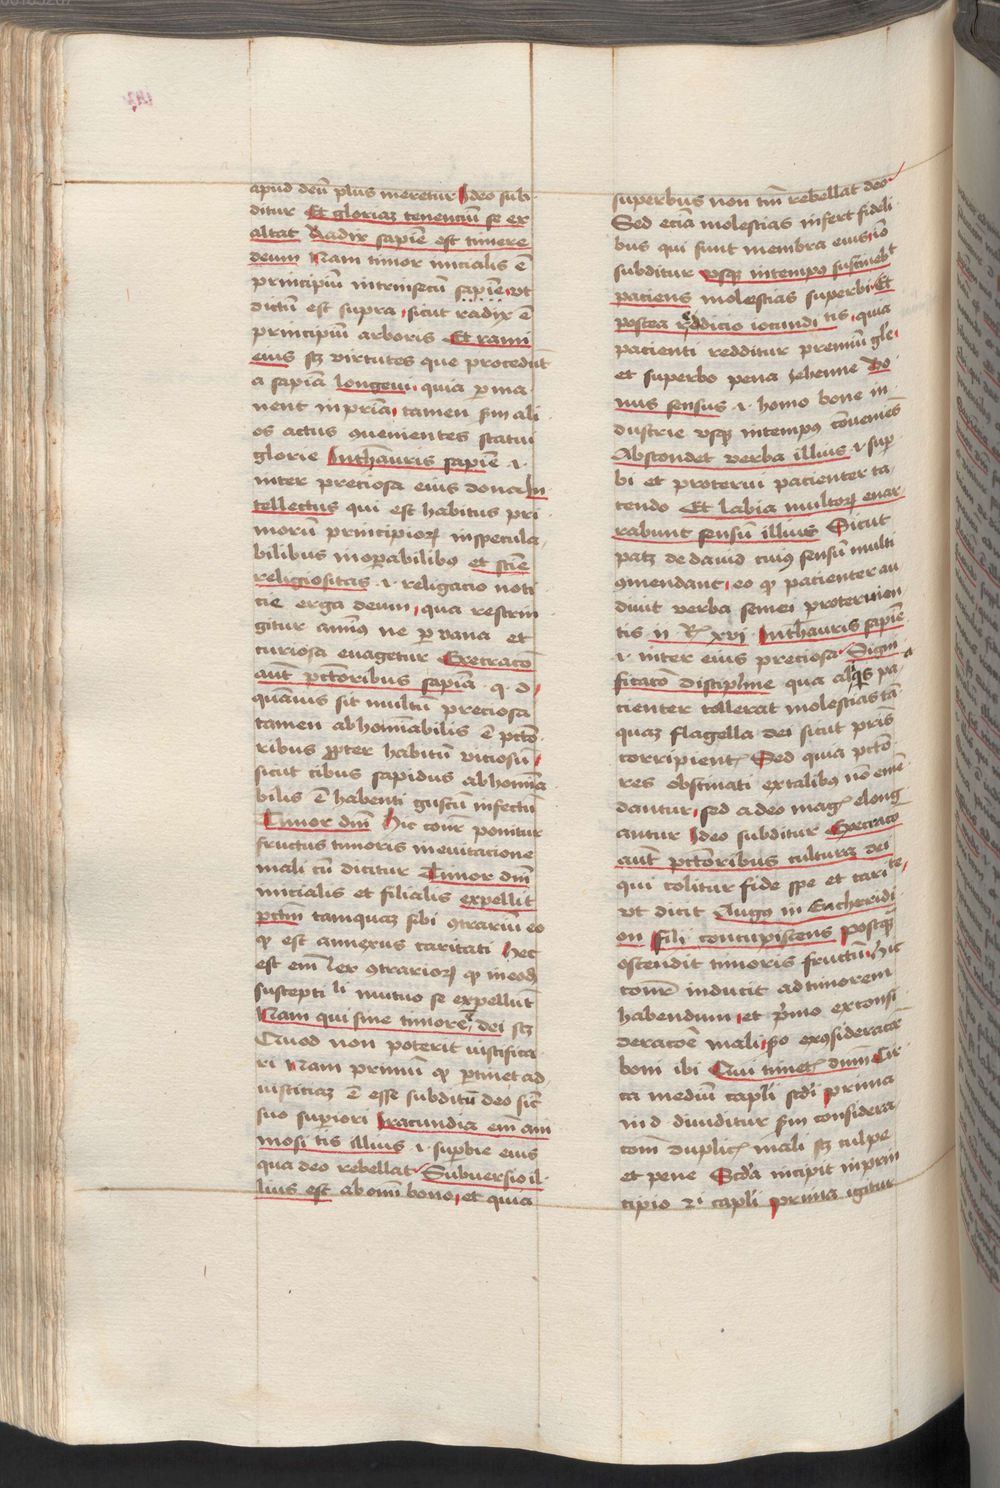 apud deū plus meretur Ideo sub
ditur Et gloriaz tenenciū se ex
altat Radix sapiē est timere
deum Nam timor inicialis ē
principiū intrinsecū sapiē ut
dictū est supra sicut radix ē
principiū arboris Et rami
eius sz virtutes que procedūt
a sapiā longeui quia p̄ma
nent in pr̄ia tamen sm ali
os actus ꝯuenientes statui
glorie In thauris sapiē .i.
inter preciosa eius dona In
tellectus qui est habitus pri
morū principioꝝ in specula
bilibus inoꝑabilibꝰ et scīe
religiositas .i. religacio noti
cie erga deum qua restrin
gitur animꝰ ne ꝑ vana et
curiosa euagetur Execracō
aut pctōribus sapiā q d
quāuis sit multū preciosa
tamen abhominabilis ē pctō
ribus ꝓpter habitū viciosū
sicut cibus sapidus abhomīa
bilis ē habenti gustū infectū
Timor dnī Hic cōnr ponitur
fructus timoris in euitacione
mali cū dicitur Timor dnī
inicialis et filialis expellit
pctm tamquaz sibi ꝯtrariū eo
ꝙ est annexus caritati Hec
est em̄ lex ꝯtrarioꝝ ꝙ in eodē
suscepti li mutuo se expellūt
Nam qui sine timore dei sz
Quod non poterit iustifica
ri Nam primum ꝙ ꝑtinet ad
iusticiaz ē esse subditū deo sic̄
suo suꝑiori Iracundia em̄ ani
mosi tis illius .i. suꝑbie eius
qua deo rebellat Subuersio il
lius est ab omī bono et quia
superbus non tm̄ rebellat deo
Sed eciā molestias infert fideli
bus qui sunt membra eius iō
subditur vsqꝫ in tempꝰ sustinebt
paciens molestias superbi Et
postea redditio iocundi tis quia
pacienti redditur premiū glē
et superbo pena iehenne Bo
nus sensus .i. homo bone in
dustrie vsqꝫ in tempꝰ cōueniēs
Abscondet verba illius .i. suꝑ
bi et proterui pacienter ta
cendo Et labia multoꝝ enar
rabunt sensū illius Sicut
patz de dauid cuiꝰ sensū multi
ꝯmendant eo ꝙ pacienter au
diuit verba semei proteruien
tis ii Rꝫ xvi In thauris sapiē
.i. inter eius preciosa Signi
ficacō discipline qua aliqs pa
cienter tollerat molestias tā
quaz flagella dei sicut pris
corripientꝫ Sed quia pctō
res obstinati ex talibꝰ nō emē
dantur sed a deo magꝫ elong
antur Ideo subditur Execracō
aut pctōribus culturaz dei
qui colitur fide spe et cari te
vt dicit Augꝰ in Encheridi
on Fili concupiscens Postqꝫ
ostendit timoris fructum hic
cōnr inducit ad timorem
habendum et p̄mo ex consi
deracōe mali scdo ex ꝯsideracōe
boni ibi Qui timetꝫ dnm Cir
ca mediū capli scdi prima
in d diuiditur sm considera
cōm duplicꝫ mali sz culpe
et pene Scda incipit in prin
cipio 2i capli prima igitur